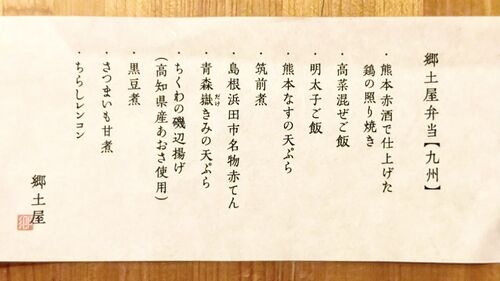 郷土屋弁当【九州】
・熊本赤酒で仕上げた
鶏の照り焼き
・高菜混ぜご飯
・明太子ご飯
・熊本なすの天ぷら
・筑前煮
・島根浜田市名物赤てん
・青森嶽きみの天ぷら
だけ
・ちくわの磯辺揚げ
（高知県産あおさ使用）
・黒豆煮
・さつまいも甘煮
・ちらしレンコン
郷土屋